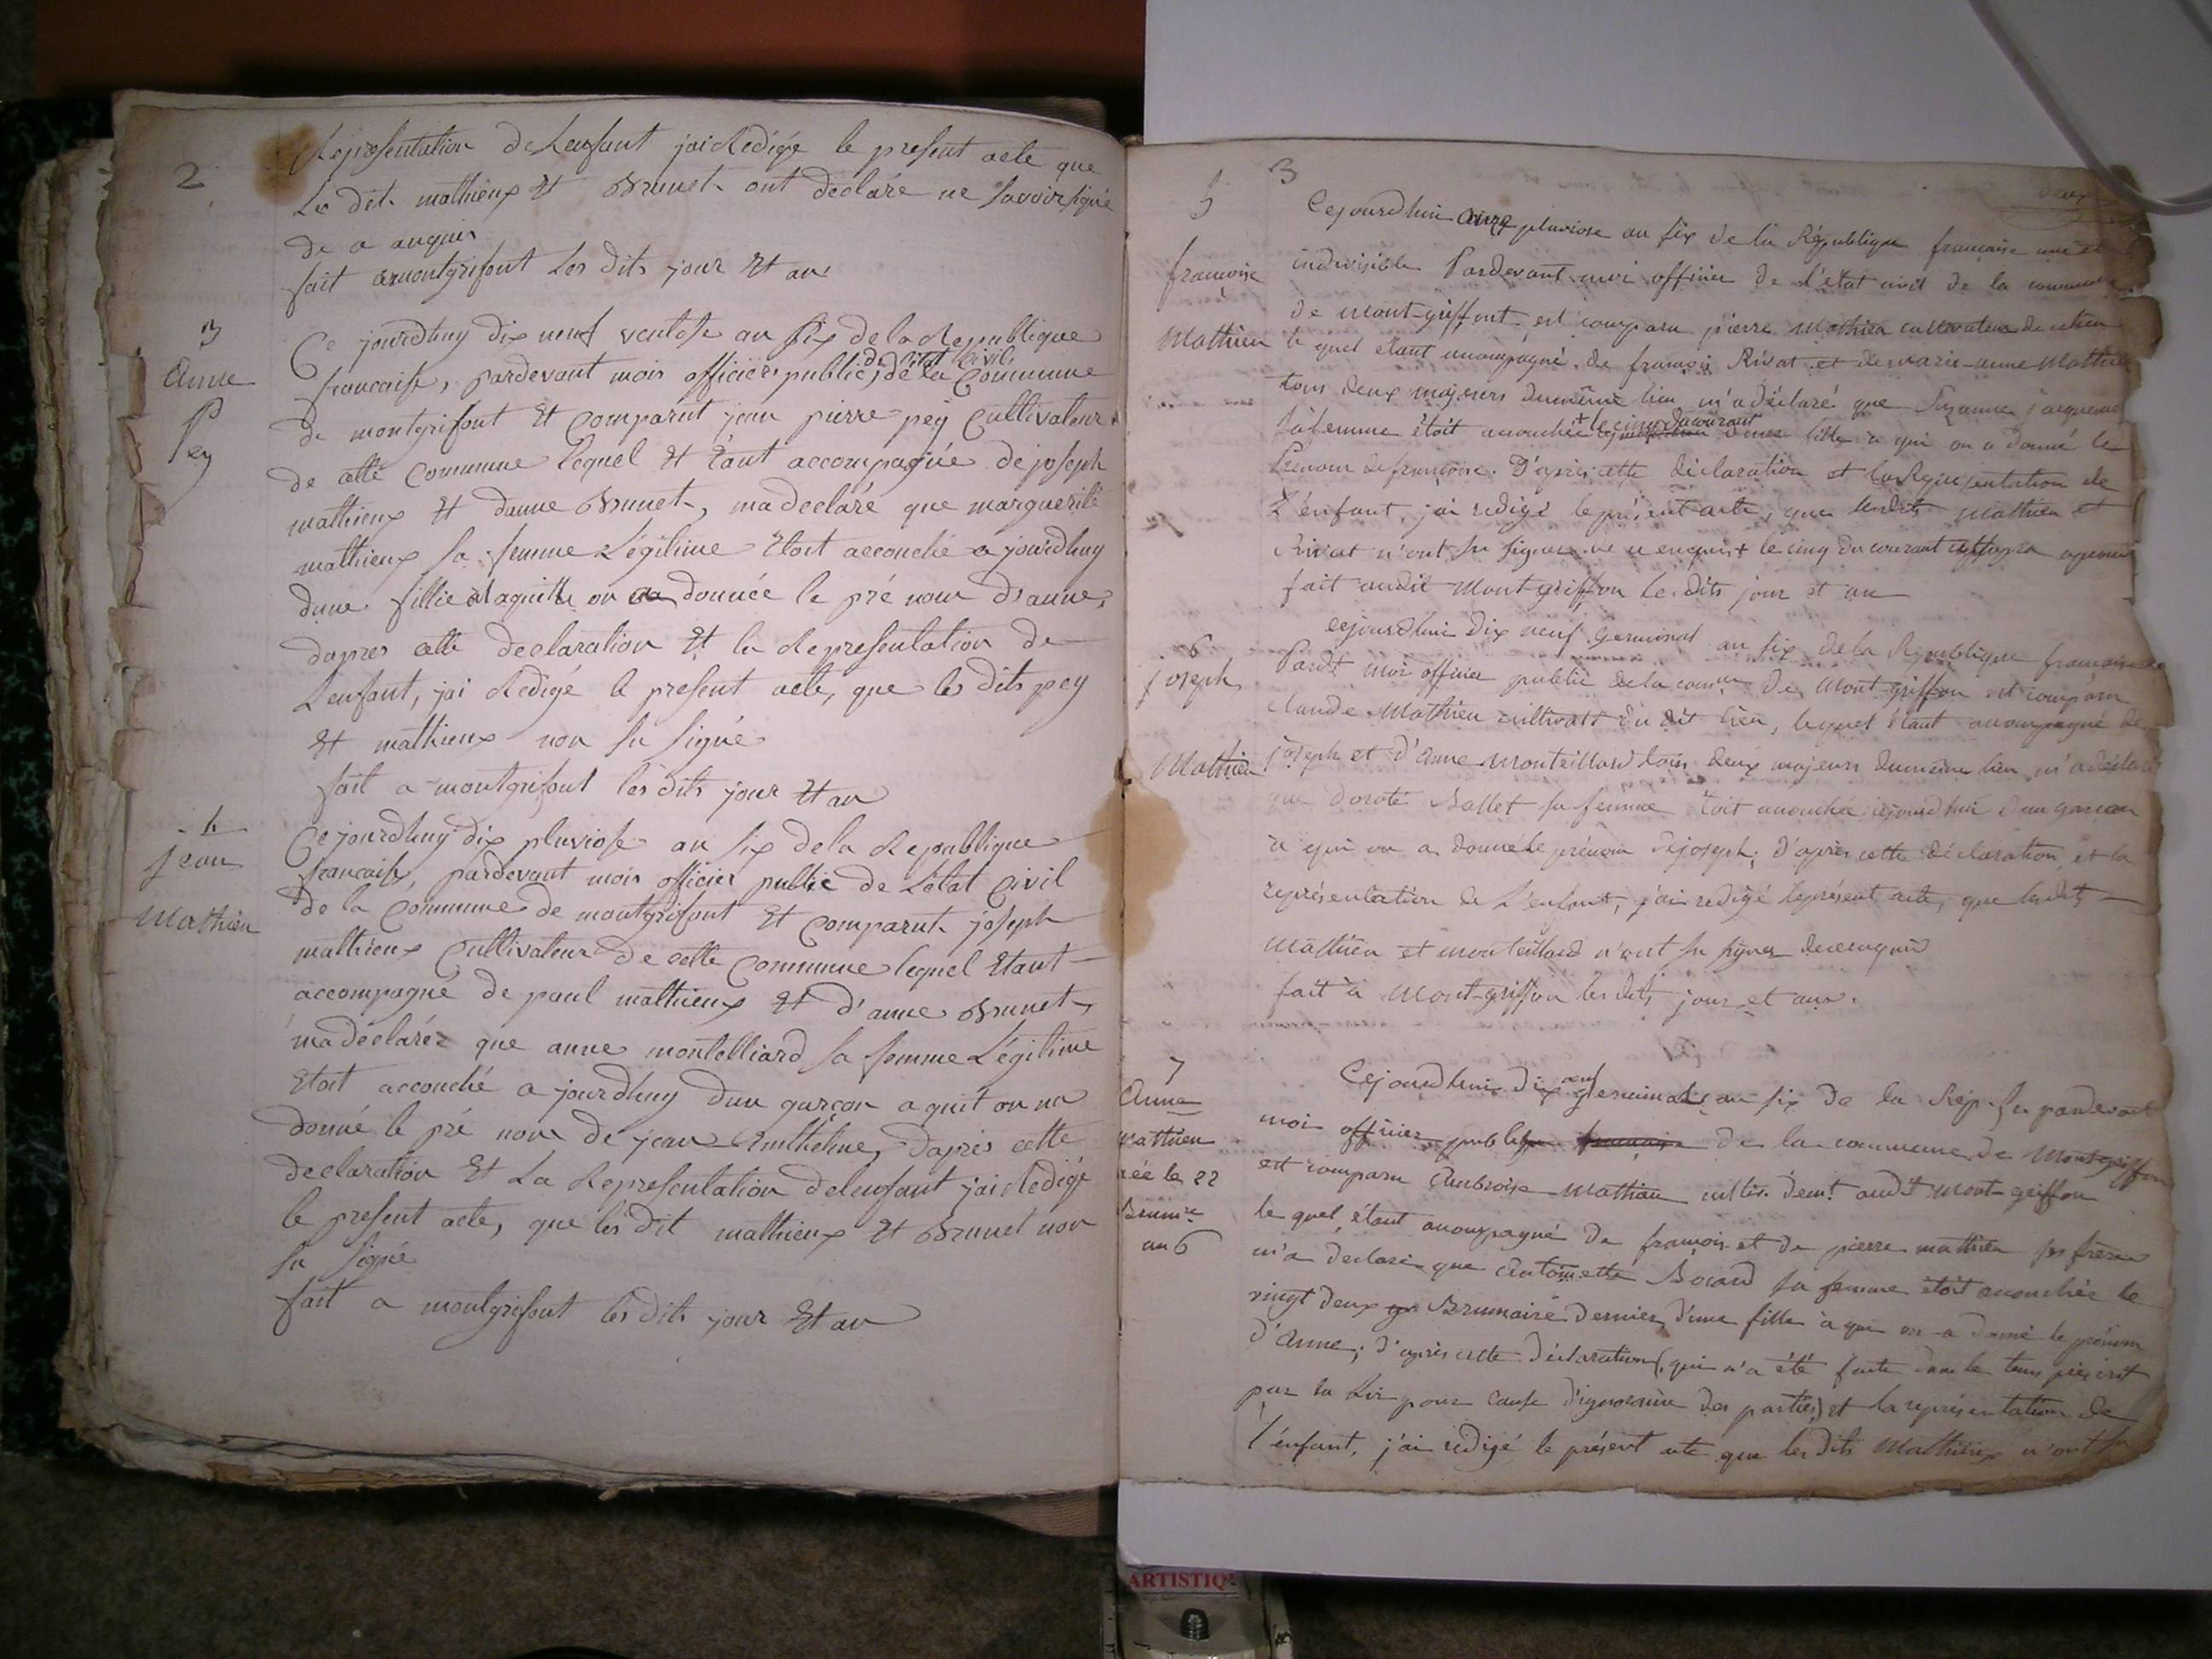 2
Représentation de Lenfant jai Redigé le present acte que
Les dits mathieux Et Brunet ont declaré ne savoir signé
de a anquis
fait a montgrifont Les dits jour Et an
3
Anne
Pey
Ce jourdhuy dix neuf ventose an six de la Republique
francaise, pardevant mois officier public, de l'état civil, de la Commune
de montgrifont Et Comparut jean pierre pey Cultivateur
de cette Commune lequel Et tant accompagné de joseph
mathieux Et danne Brunet, ma declaré que marguerite
mathieux sa femme Légitime Etoit accouché a jourdhuy
dune fillie a laquelle on a donnée le pré nom d'anne,
dapres cette declaration Et la Representation de
Lenfant, jai Redigé le present acte, que les dits pey
Et mathieux non su signé
fait a montgrifont les dits jour Et an
4
jean
Mathieu
Ce jourdhuy dix pluviose an six de la Republique
francaise, pardevant mois officier public de L'état Civil
de la Commune de montgrifont Et Comparut joseph
mathieux Cultivateur de cette Commune lequel Etant
accompagné de paul mathieux Et d'anne Brunet,
ma declaréz que anne montelliard sa femme Légitime
Etoit accouché a jourdhuy dun garçon a quit on na
donné le pré nom de jean dapres cette
declaration Et La Representation de lenfant jai Redigé
le present acte, que les dit mathieux Et Brunet non
su signé
fait a montgrifont les dits jour Et an
3
deux
5
françoise
Mathieu
Cejourdhui onze pluviose an six de la République française une et
indivisible Pardevant moi officier de l'état civil de la commune
de mont-griffont est comparu pierre Mathieu cultivateur du
le quel étant accompagné de françois Rivat et de marie-anne Mathieu
tous deux majeurs du même lieu m'a déclaré que Suzanne jacquemet
sa femme étoit accouchée + le cinq du courant d'une fille a qui on a donné le
Prénom de françoise. D'après cette déclaration et la Représentation de
L'enfant, j'ai redigé le présent acte, que lesdits Mathieu et
Rivat n'ont su signer de ce enquis + le cinq du courant approuvé
fait audit Mont-griffon les dits jour et an
6
joseph
Mathieu
cejourdhui dix neuf Germinal an six de la République française
Pardt moi officier public de la comune de Mont-griffon est comparu
Claude Mathieu cultivatr du dit lieu, lequel étant accompagné de
joseph et d'Anne Monteillard tous deux majeurs du même lieu, m'a déclaré
que doroté Ballet sa femme étoit accouchée cejourd'hui d'un garcon
a qui on a donné le prénom de joseph; d'après cette déclaration et la
représentation de L'enfant, j'ai redigé le présent acte, que lesdits
Mathieu et monteillard n'ont su signer de ce enquis
fait à Mont-griffon les dits jour et an.
7
Anne
mathieu
née le 22
Brumre
an 6
Cejourdhui dix neuf germinal an six de la Rep. fse pardevant
moi officier public française de la commune de Montgriffon
est comparu Ambroise Mathieu cultiv. demt audit Mont-griffon
le quel étant accompagné de françois et de pierre mathieu ses frères
m'a declaré que Antoinette Borard sa femme étoit accouchée le
vingt deux Brumaire dernier d'une fille à qui on a donné le prénom
d'Anne; d'après cette déclaration (qui n'a été faite dans le tems prescrit
par la Loi pour cause d'ignorance des parties) et la représentation de
l'enfant, j'ai redigé le présent acte que les dits Mathieux n'ont su
ARTISTIQ